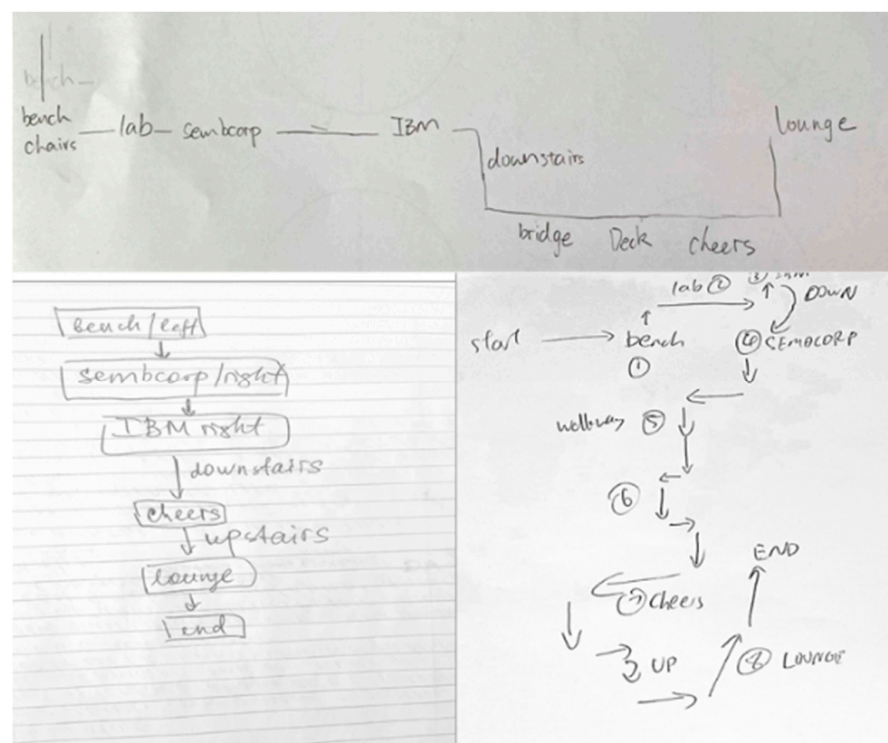 bench
bench
chairs
lab
sembcorp
IBM
lounge
downstairs
bridge Deck cheers
bench/left
sembcorp/right
IBM right
downstairs
cheers
upstairs
lounge
end
lab ②
③ IBM
DOWN
start
bench
①
④ SEMBCORP
⑤
⑥
END
⑦ cheers
UP
⑧ LOUNGE